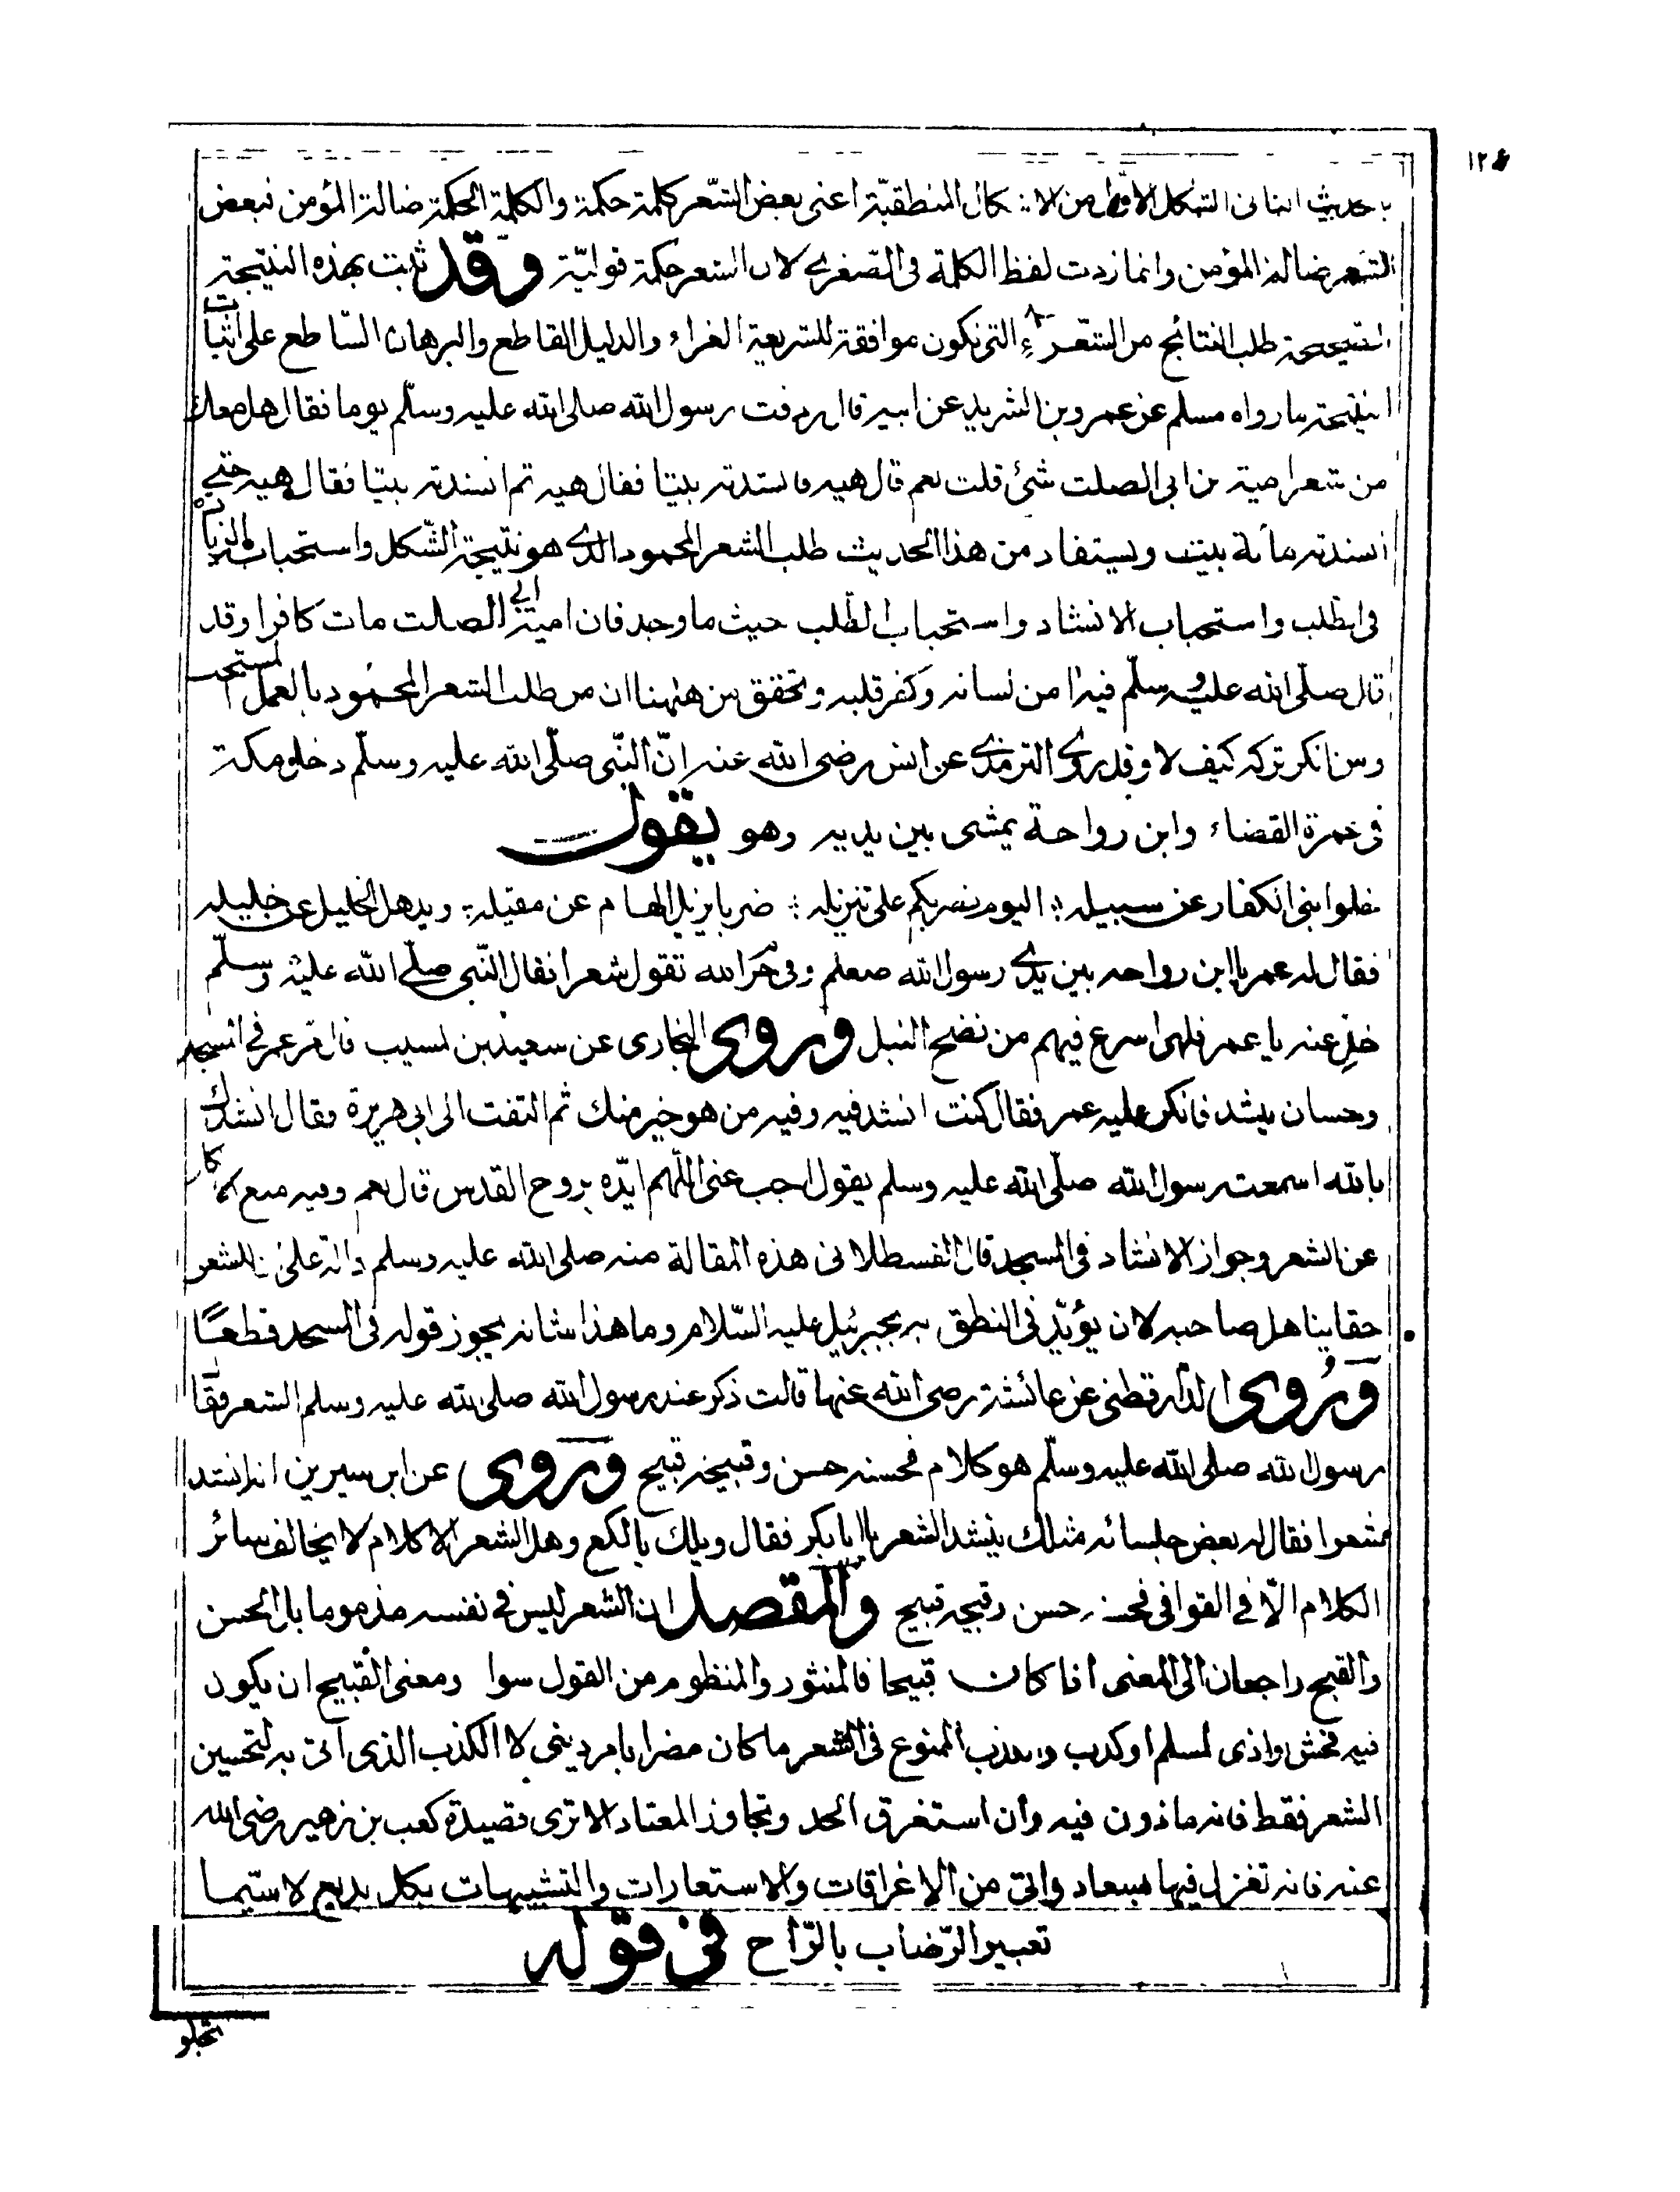 ١٢٤
الحديث الثانی الشكل الاول من الاشكال المنطقيّة اعنی بعض الشّعر كلمة حكمة والكلمة الحكمة ضالة المؤمن فبعض
الشعر ضالة المؤمن وانما زدت لفظ الكلمة فی الصّغرے لان الشعر حكمة قوليّة وقد ثبت بهذه النتيجة
الصحيحة طلب النتائج من الشّعراء التی تكون موافقة للشريعة الغراء والدليل القاطع والبرهان السّاطع علی اثبات
النتيجة ما رواه مسلم عن عمرو بن الشريد عن ابيه قال ردفت رسول الله صلی الله عليه وسلّم يوما فقال هل معك
من شعر امية بن ابی الصلت شئ قلت نعم قال هيه فانشدته بيتا فقال هيه ثم انشدته بيتا فقال هيه حتے
انشدته مائة بيت ويستفاد من هذا الحديث طلب الشعر المحمود الذے هو نتيجة الشّكل واستحباب الزيادة
فی الطلب واستحباب الانشاد واستحباب الطّلب حيث ما وجد فان امية بن ابے الصلت مات كافرا وقد
قال صلّی الله عليه وسلّم فيه امن لسانه وكفر قلبه وتحقق من ههنا ان من طلب الشعر المحمود بالعمل المستحب
ومن انكر تركه كيف لا وقد روے الترمذے عن انس رضی الله عنه انّ النّبی صلّی الله عليه وسلّم دخل مكة
فی عمرة القضاء وابن رواحة يمشی بين يديه وهو يقول
خلوا بنی الكفار عن سبيله ؛ اليوم نضربكم علی تنزيله ؛ ضربا يزيل الهام عن مقيله ؛ ويذهل الخليل عن خليله
فقال له عمر يا ابن رواحه بين يدے رسول الله صعلم وفی حرم الله تقول شعرا فقال النّبی صلّے الله عليه وسلّم
خلّ عنه يا عمر فلهی اسرع فيهم من نضح النبل وروی البخاری عن سعيد بن المسيب قال مرّ عمر فی المسجد
وحسان ينشد فانكر عليه عمر فقال كنت انشد فيه وفيه من هو خير منك ثم التفت الی ابی هريرة فقال انشدك
بالله اسمعت رسول الله صلّی الله عليه وسلم يقول اجب عنی اللّهم ايّده بروح القدس قال نعم وفيه منع
عن الشعر وجواز الانشاد فی المسجد قال القسطلانی هذه المقالة منه صلی الله عليه وسلم دالة علی ان للشعر
حقا يتاهل صاحبه لان يؤيّد فی النطق به بجبرئيل عليه السّلام وما هذا شانه يجوز قوله فی المسجد قطعًا
وروی الدار قطنی عن عائشة رضی الله عنها قالت ذكر عند رسول الله صلی الله عليه وسلم الشعر فقال
رسول الله صلی الله عليه وسلّم هو كلام فحسنه حسن وقبيحه قبيح وروی عن ابن سيرين انه انشد
شعرا فقال له بعض جلسائه مثلك ينشد الشعر يا ابا بكر فقال ويلك يا لكع وهل الشعر الا كلام لا يخالف سائر
الكلام الّا فے القوافی فحسنه حسن وقبيحه قبيح والمقصد ان الشعر ليس فے نفسه مذموما بل الحسن
والقبح راجعان الی المعنی اذا كان قبيحا فالمنثور والمنظوم من القول سوا ومعنی القبيح ان يكون
فيه فحش واذی لمسلم او كذب والكذب الممنوع فی الشعر ما كان مضرا بامر دينی لا الكذب الذی اتی به لتحسين
الشعر فقط فانه ماذون فيه وان استغرق الحد وتجاوز المعتاد الا تری قصيدة كعب بن زهير رضی الله
عنه فانه تغزل فيها بسعاد واتی من الاغراقات والاستعارات والتشبيهات بكل بديع لا سيّما
تعبير الرّضاب بالرّاح فی قوله
تجلو